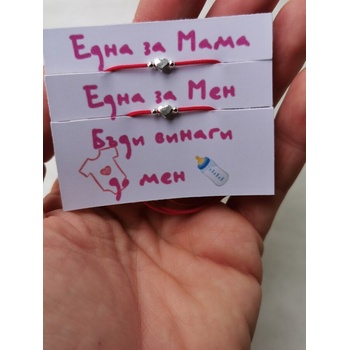 Една за Мама
Една за Мен
Бъди винаги
до мен